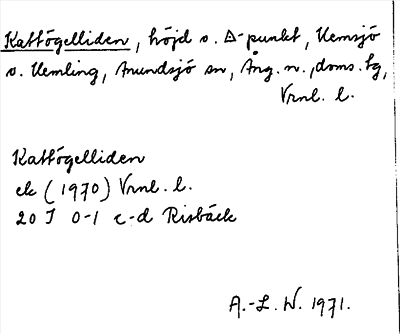 Kattögelliden, höjd o. Δ-punkt, Hemsjö
o. Hemling, Anundsjö sn, Ång. n., doms. tg,
Vrnl. l.
Kattögelliden
ek (1970) Vrnl. l.
20 I 0-1 c-d Risbäck
A.-L. W. 1971.